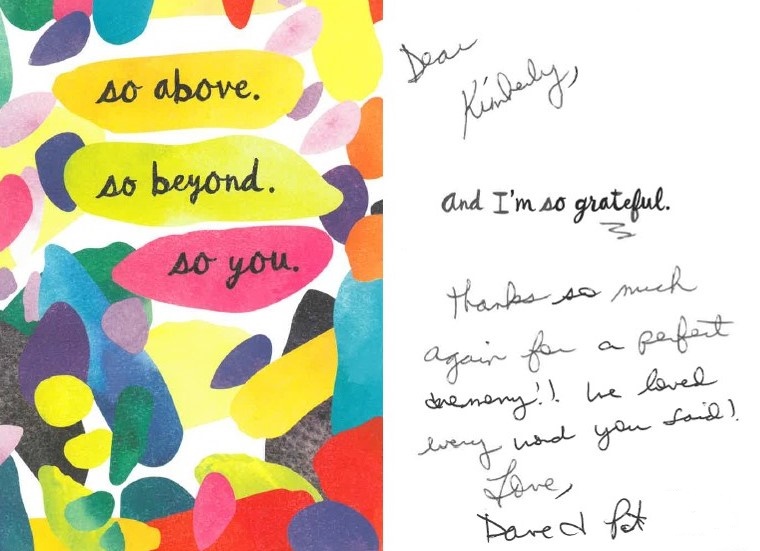 so above.
so beyond.
so you.
Dear
Kimberly,
and I'm so grateful.
Thanks so much
again for a perfect
ceremony!! We loved
every word you said!
Love,
Dave & Pat